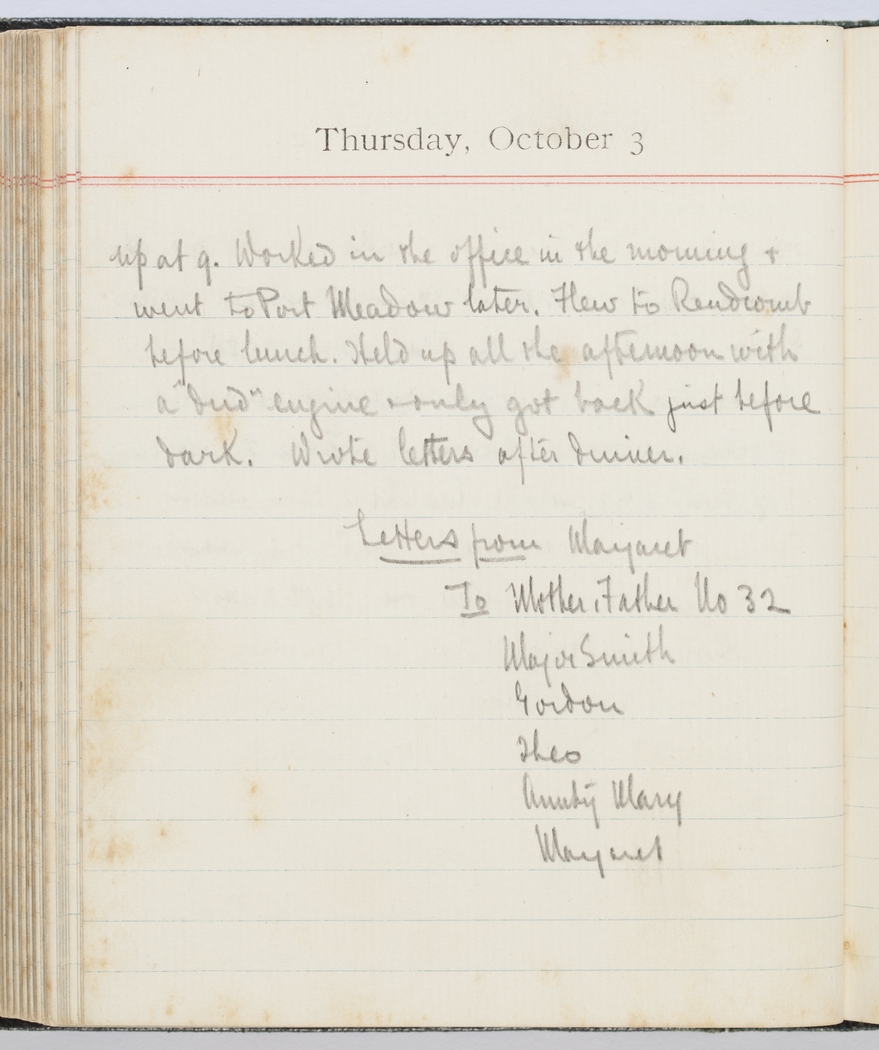 Thursday, October 3
up at 9. Worked in the office in the morning +
went to Port Meadow later. Flew to Rendcomb
before lunch. Held up all the afternoon with
a "dud" engine + only got back just before
dark. Wrote letters after dinner.
Letters from Margaret
To Mother, Father No 32
Major Smith
Gordon
Theo
Aunty Mary
Margaret